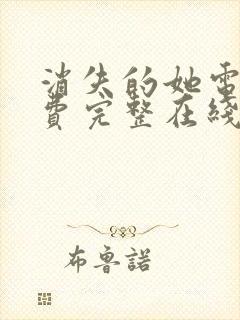 消失的她電
費完整在綫
布魯諾